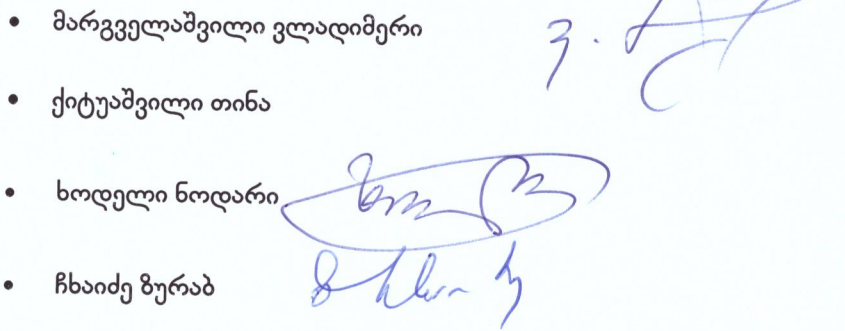 • მარგველაშვილი ვლადიმერი
• ქიტუაშვილი თინა
• ხოდელი ნოდარი
• ჩხაიძე ზურაბ